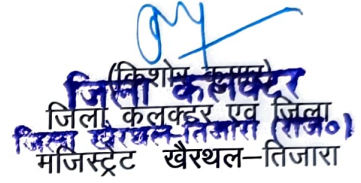 (किशोर कुमार)
जिला कलक्टर
जिला कलक्टर एवं जिला
जिला खैरथल-तिजारा (राज०)
मजिस्ट्रेट खैरथल–तिजारा